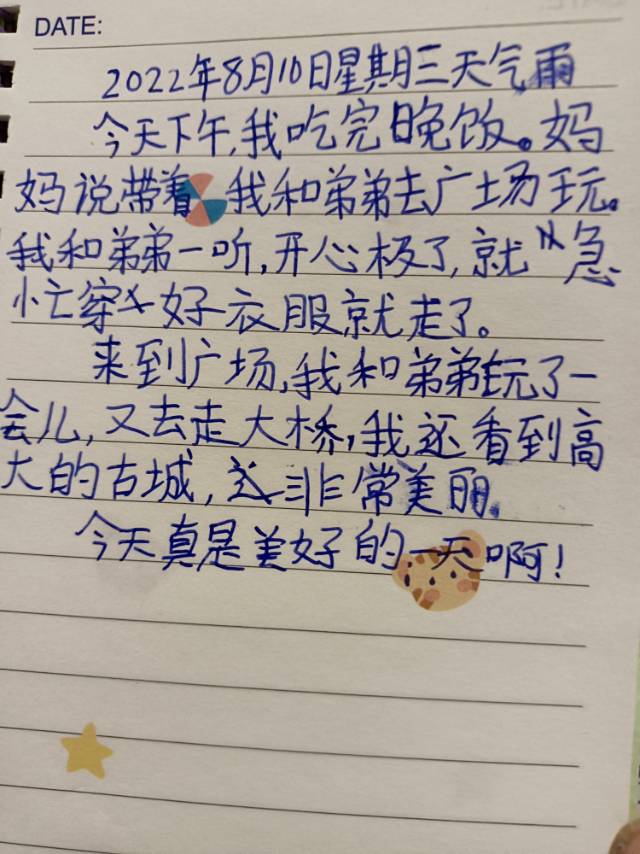 DATE:
2022年8月10日星期三天气雨
今天下午,我吃完晚饭。妈
妈说带着我和弟弟去广场玩。
我和弟弟一听,开心极了,就急
忙穿好衣服就走了。
来到广场,我和弟弟玩了一
会儿,又去走大桥,我还看到高
大的古城,非常美丽。
今天真是美好的一天啊!